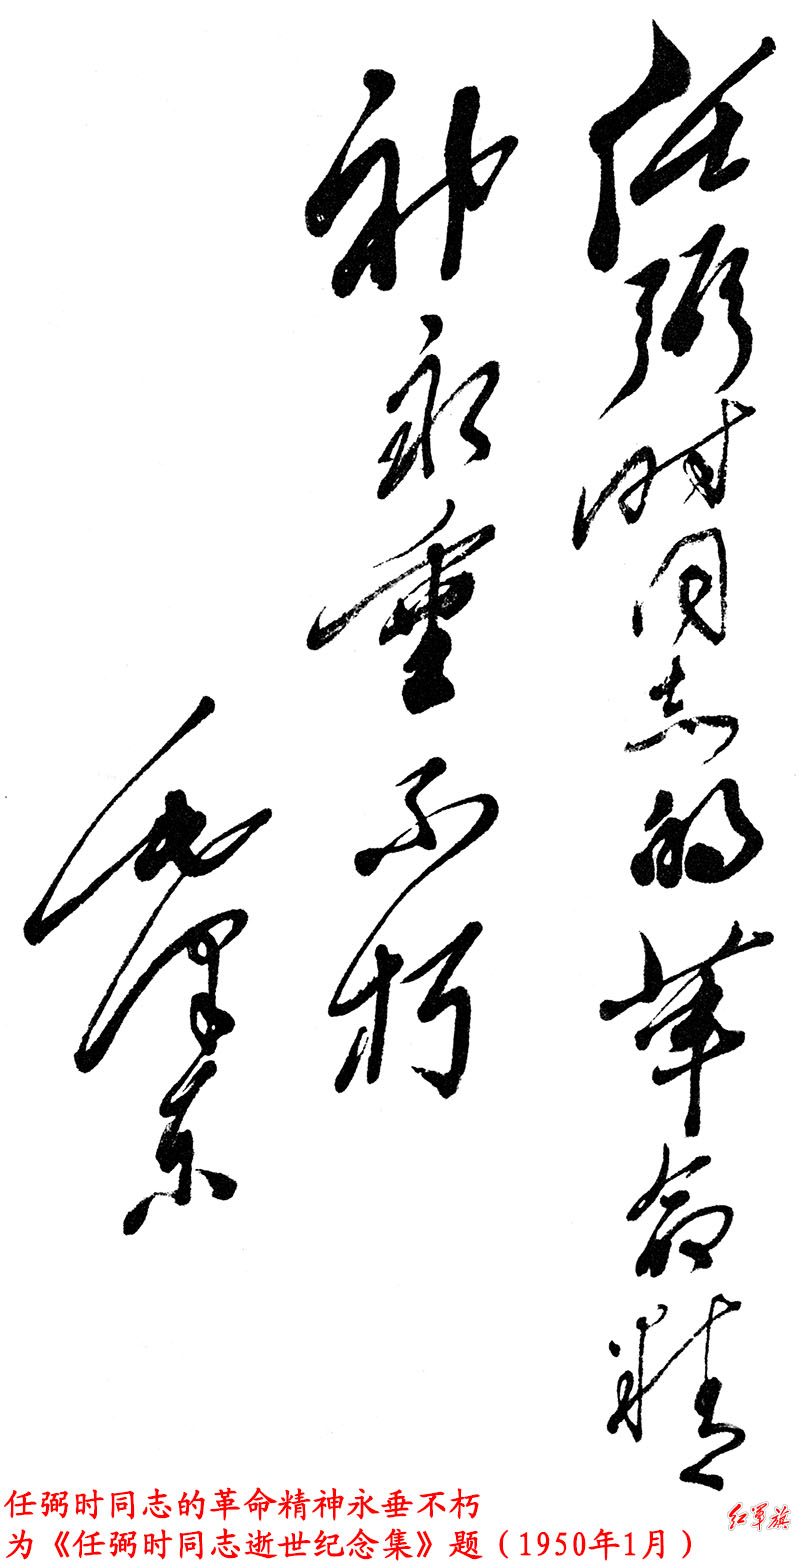 任弼时同志的革命精
神永垂不朽
毛泽东
任弼时同志的革命精神永垂不朽
为《任弼时同志逝世纪念集》题（1950年1月）
红军旗